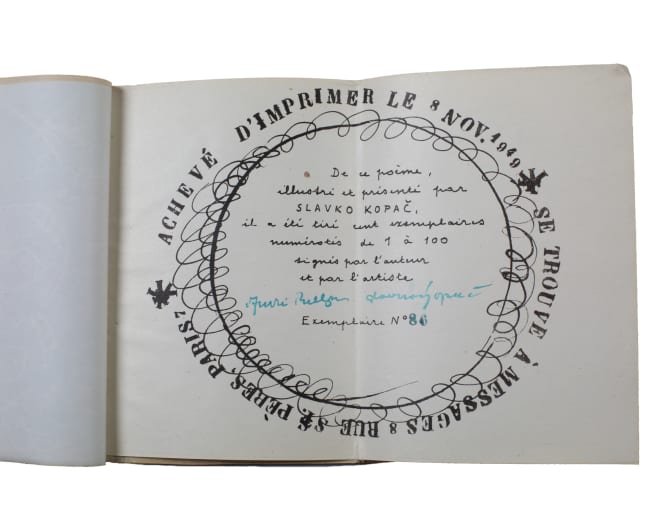 ACHEVÉ D'IMPRIMER LE 8 NOV. 1949
SE TROUVE À MESSAGES 8 RUE PÈRES, PARIS 7
De ce poème,
illustré et présenté par
SLAVKO KOPAČ,
il a été tiré cent exemplaires
numérotés de 1 à 100
signés par l'auteur
et par l'artiste
Exemplaire N° 86